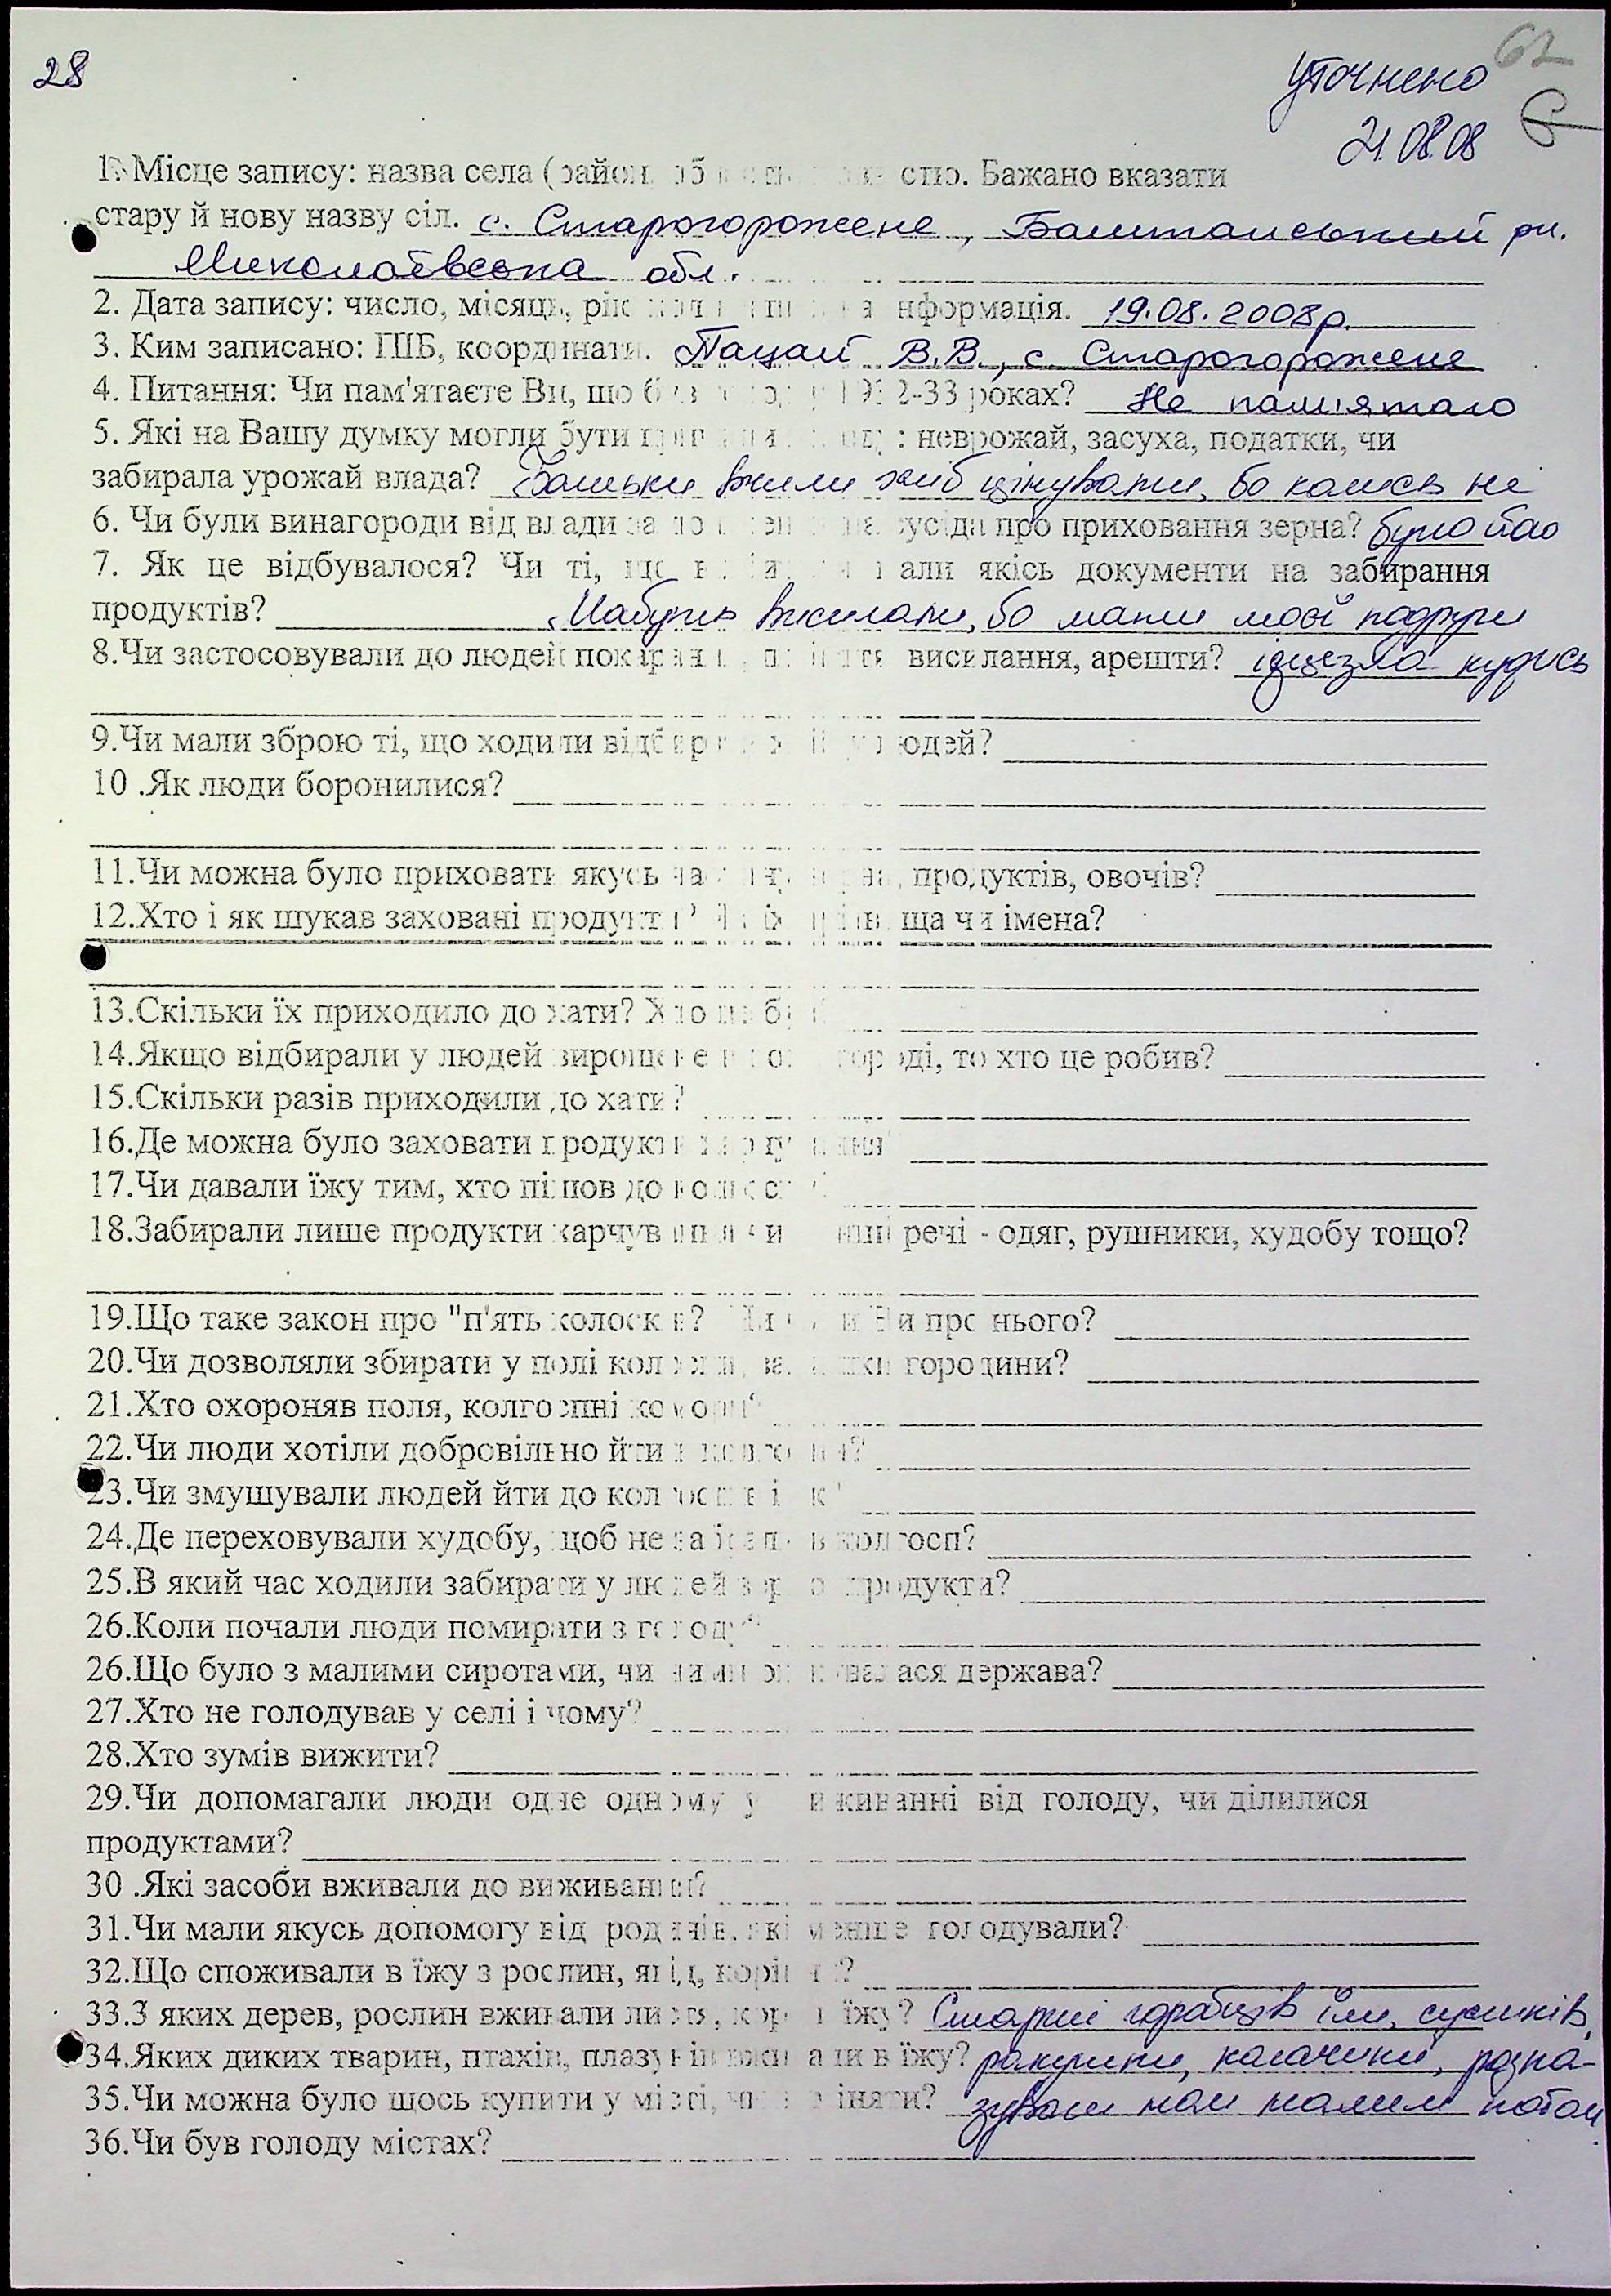 28
62
уточнено
21.08.08
1. Місце запису: назва села (район, стю. Бажано вказати
стару й нову назву сіл. с. Старогорожене, Баштанський рн.
Миколаївська обл.
2. Дата запису: число, місяць, рік інформація. 19.08.2008р.
3. Ким записано: ПІБ, координати. Пацай В.В., с. Старогорожене
4. Питання: Чи пам'ятаєте Ви, що 1932-33 роках? Не пам'ятаю
5. Які на Вашу думку могли бути : неврожай, засуха, податки, чи
забирала урожай влада? Батьки вчили хліб цінувати, бо колись не
6. Чи були винагороди від влади за сусіда про приховання зерна? було його
7. Як це відбувалося? Чи ті, що мали якісь документи на забирання
продуктів? Мабуть висилали, бо мати моєї подруги
8.Чи застосовували до людей покарання, висилання, арешти? ідцезла кудись
9.Чи мали зброю ті, що ходили людей?
10 .Як люди боронилися?
11.Чи можна було приховати якусь продуктів, овочів?
12.Хто і як шукав заховані продукти? Чи їх прізвища чи імена?
13.Скільки їх приходило до хати? Хто це був?
14.Якщо відбирали у людей вирощене на городі, то хто це робив?
15.Скільки разів приходили до хати?
16.Де можна було заховати продукти харчування?
17.Чи давали їжу тим, хто пішов до колгоспу?
18.Забирали лише продукти харчування чи інші речі - одяг, рушники, худобу тощо?
19.Що таке закон про "п'ять колосків? Чи Ви про нього?
20.Чи дозволяли збирати у полі колоски, залишки городини?
21.Хто охороняв поля, колгоспні комори?
22.Чи люди хотіли добровільно йти в колгоспи?
23.Чи змушували людей йти до колгоспів і як?
24.Де переховували худобу, щоб не забрали в колгосп?
25.В який час ходили забирати у людей зерно, продукти?
26.Коли почали люди помирати з голоду?
26.Що було з малими сиротами, чи ними опікувалася держава?
27.Хто не голодував у селі і чому?
28.Хто зумів вижити?
29.Чи допомагали люди одне одному у виживанні від голоду, чи ділилися
продуктами?
30 .Які засоби вживали до виживання?
31.Чи мали якусь допомогу від родичів, які менше голодували?
32.Що споживали в їжу з рослин, ягід, коріння?
33.З яких дерев, рослин вживали листя, кору в їжу? Старші горобців їли, сусликів,
34.Яких диких тварин, птахів, плазунів вживали в їжу? ракушки, калачики, розка-
35.Чи можна було щось купити у місті, чи обміняти? зували нам малим потом
36.Чи був голоду містах?